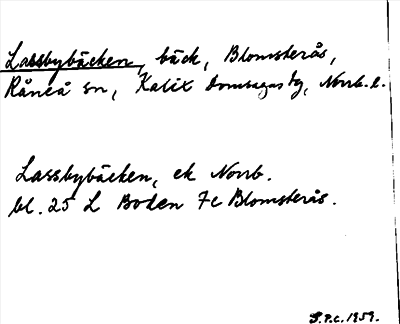 Lassbybäcken, bäck, Blomsterås,
Råneå sn, Kalix domsagas tg, Norrb. l.
Lassbybäcken, ek Norrb.
bl. 25 L Boden 7c Blomsterås.
S.P.c. 1959.